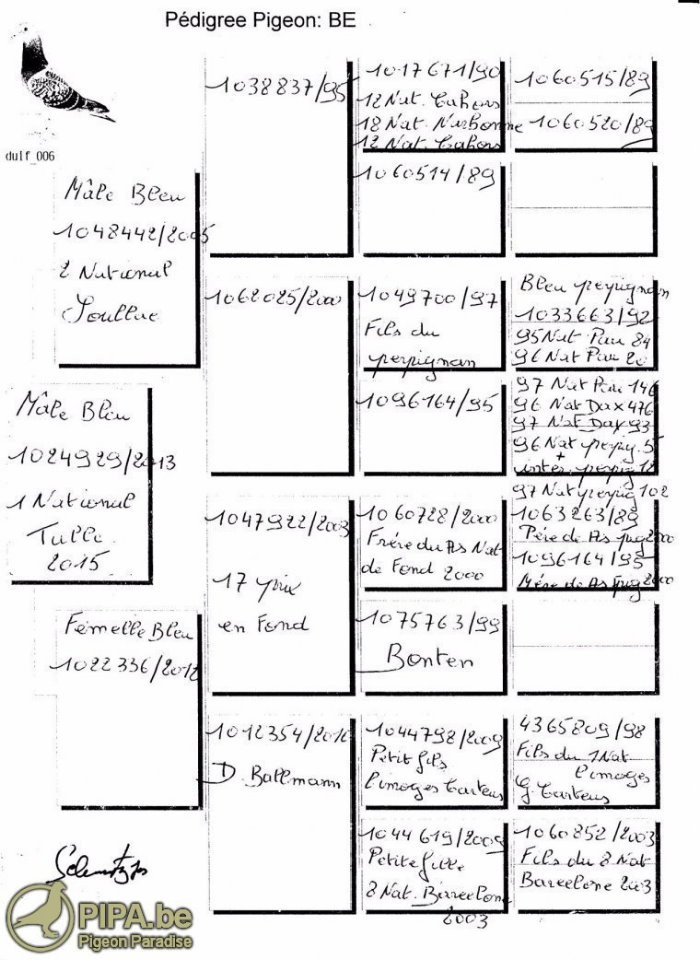 Pédigree Pigeon: BE
dulf_006
Mâle Bleu
1048442/2005
2 National
Soullac
Mâle Bleu
1024929/2013
1 National
Tulle
2015
Femelle Bleu
1022336/2012
1038837/95
1062025/2000
1047922/2003
17 prix
en Fond
1012354/2010
D. Ballmann
1017671/90
12 Nat. Cahors
18 Nat. Narbonne
12 Nat. Cahors
1060514/89
1049700/97
Fils du
perpignan
1096164/95
1060728/2000
Frére du As Nat
de Fond 2000
1075763/99
Bonten
1044798/2009
Petit fils
Limoges Carteus
1044619/2009
Petite fille
8 Nat. Barcelone
2003
1060515/89
1060520/89
Bleu perpignan
1033663/92
95 Nat Pau 84
96 Nat Pau 20
97 Nat Pau 146
96 Nat Dax 476
97 Nat Dax 93
96 Nat perpig. 5
+
inter perpig 12
97 Nat perpig 102
1063263/89
Pére de As 2000
1096164/95
Mére de As 2000
4365809/98
Fils du 1 Nat
Limoges
G. Carteus
1060852/2003
Fils du 8 Nat
Barcelone 2003
PIPA.be
Pigeon Paradise